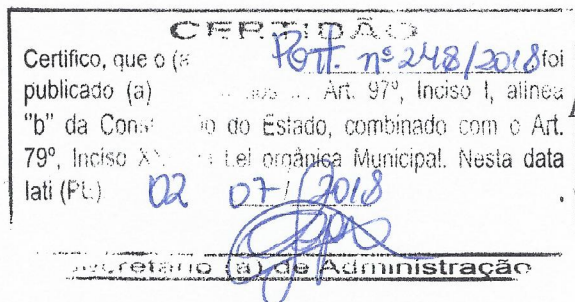 CERTIDÃO
Certifico, que o (a Port. nº 248/2018 foi
publicado (a) Art. 97º, Inciso I, alínea
"b" da Cons do Estado, combinado com o Art.
79º, Inciso Lei orgânica Municipal. Nesta data
Iati (PE) 02 07 / 2018
Secretário (a) de Administração